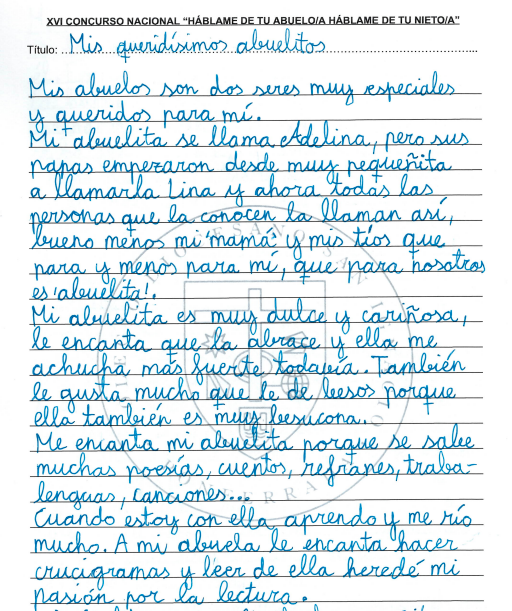 XVI CONCURSO NACIONAL “HÁBLAME DE TU ABUELO/A HÁBLAME DE TU NIETO/A”
Título: Mis queridísimos abuelitos
Mis abuelos son dos seres muy especiales
y queridos para mí.
Mi abuelita se llama Adelina, pero sus
papas empezaron desde muy pequeñita
a llamarla Lina y ahora todas las
personas que la conocen la llaman así,
bueno menos mi mamá y mis tíos que
para y menos para mí, que para nosotros
es 'abuelita'.
Mi abuelita es muy dulce y cariñosa,
le encanta que la abrace y ella me
achucha más fuerte todavía. También
le gusta mucho que le de besos porque
ella también es muy besucona.
Me encanta mi abuelita porque se sabe
muchas poesías, cuentos, refranes, traba-
lenguas, canciones...
Cuando estoy con ella aprendo y me río
mucho. A mi abuela le encanta hacer
crucigramas y leer de ella heredé mi
pasión por la lectura.